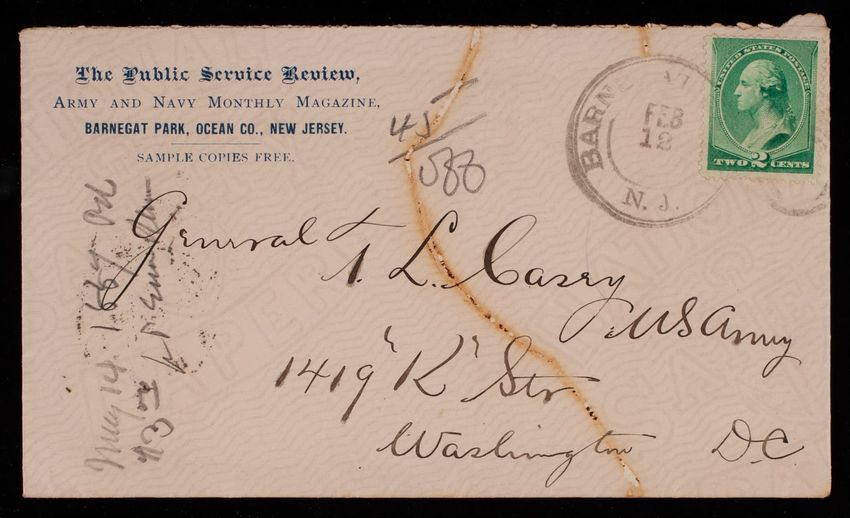 The Public Service Review,
ARMY AND NAVY MONTHLY MAGAZINE,
BARNEGAT PARK, OCEAN CO., NEW JERSEY.
SAMPLE COPIES FREE.
45
588
BARNE
FEB
12
N. J.
UNITED STATES POSTAGE
TWO 2 CENTS
General
T. L. Casey
USArmy
1419 "K" Str
Washington DC
May 14